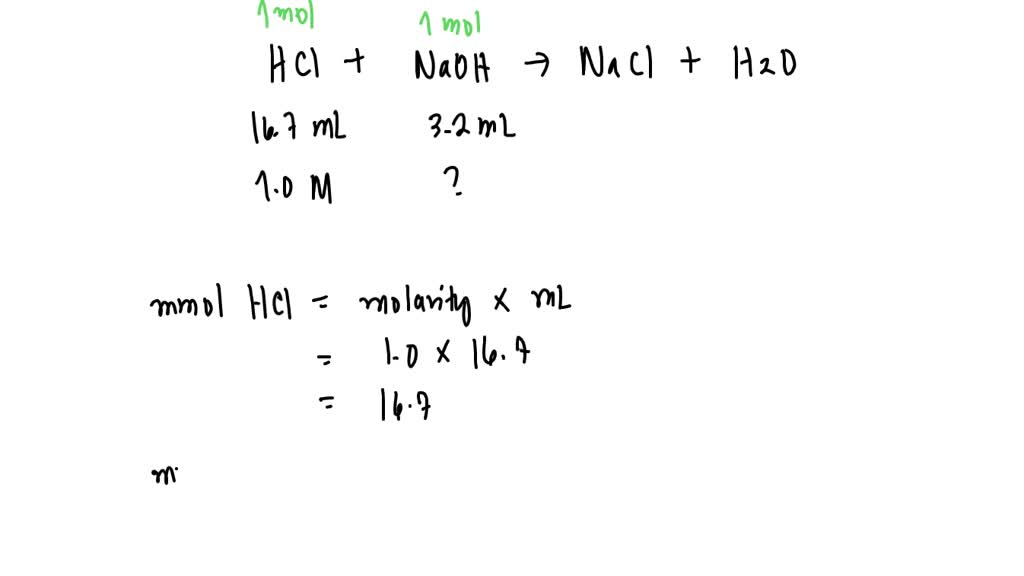 1 mol 1 mol
HCl + NaOH → NaCl + H2O
16.7 mL 3.2 mL
1.0 M ?
mmol HCl = molarity × mL
= 1.0 × 16.7
= 16.7
m